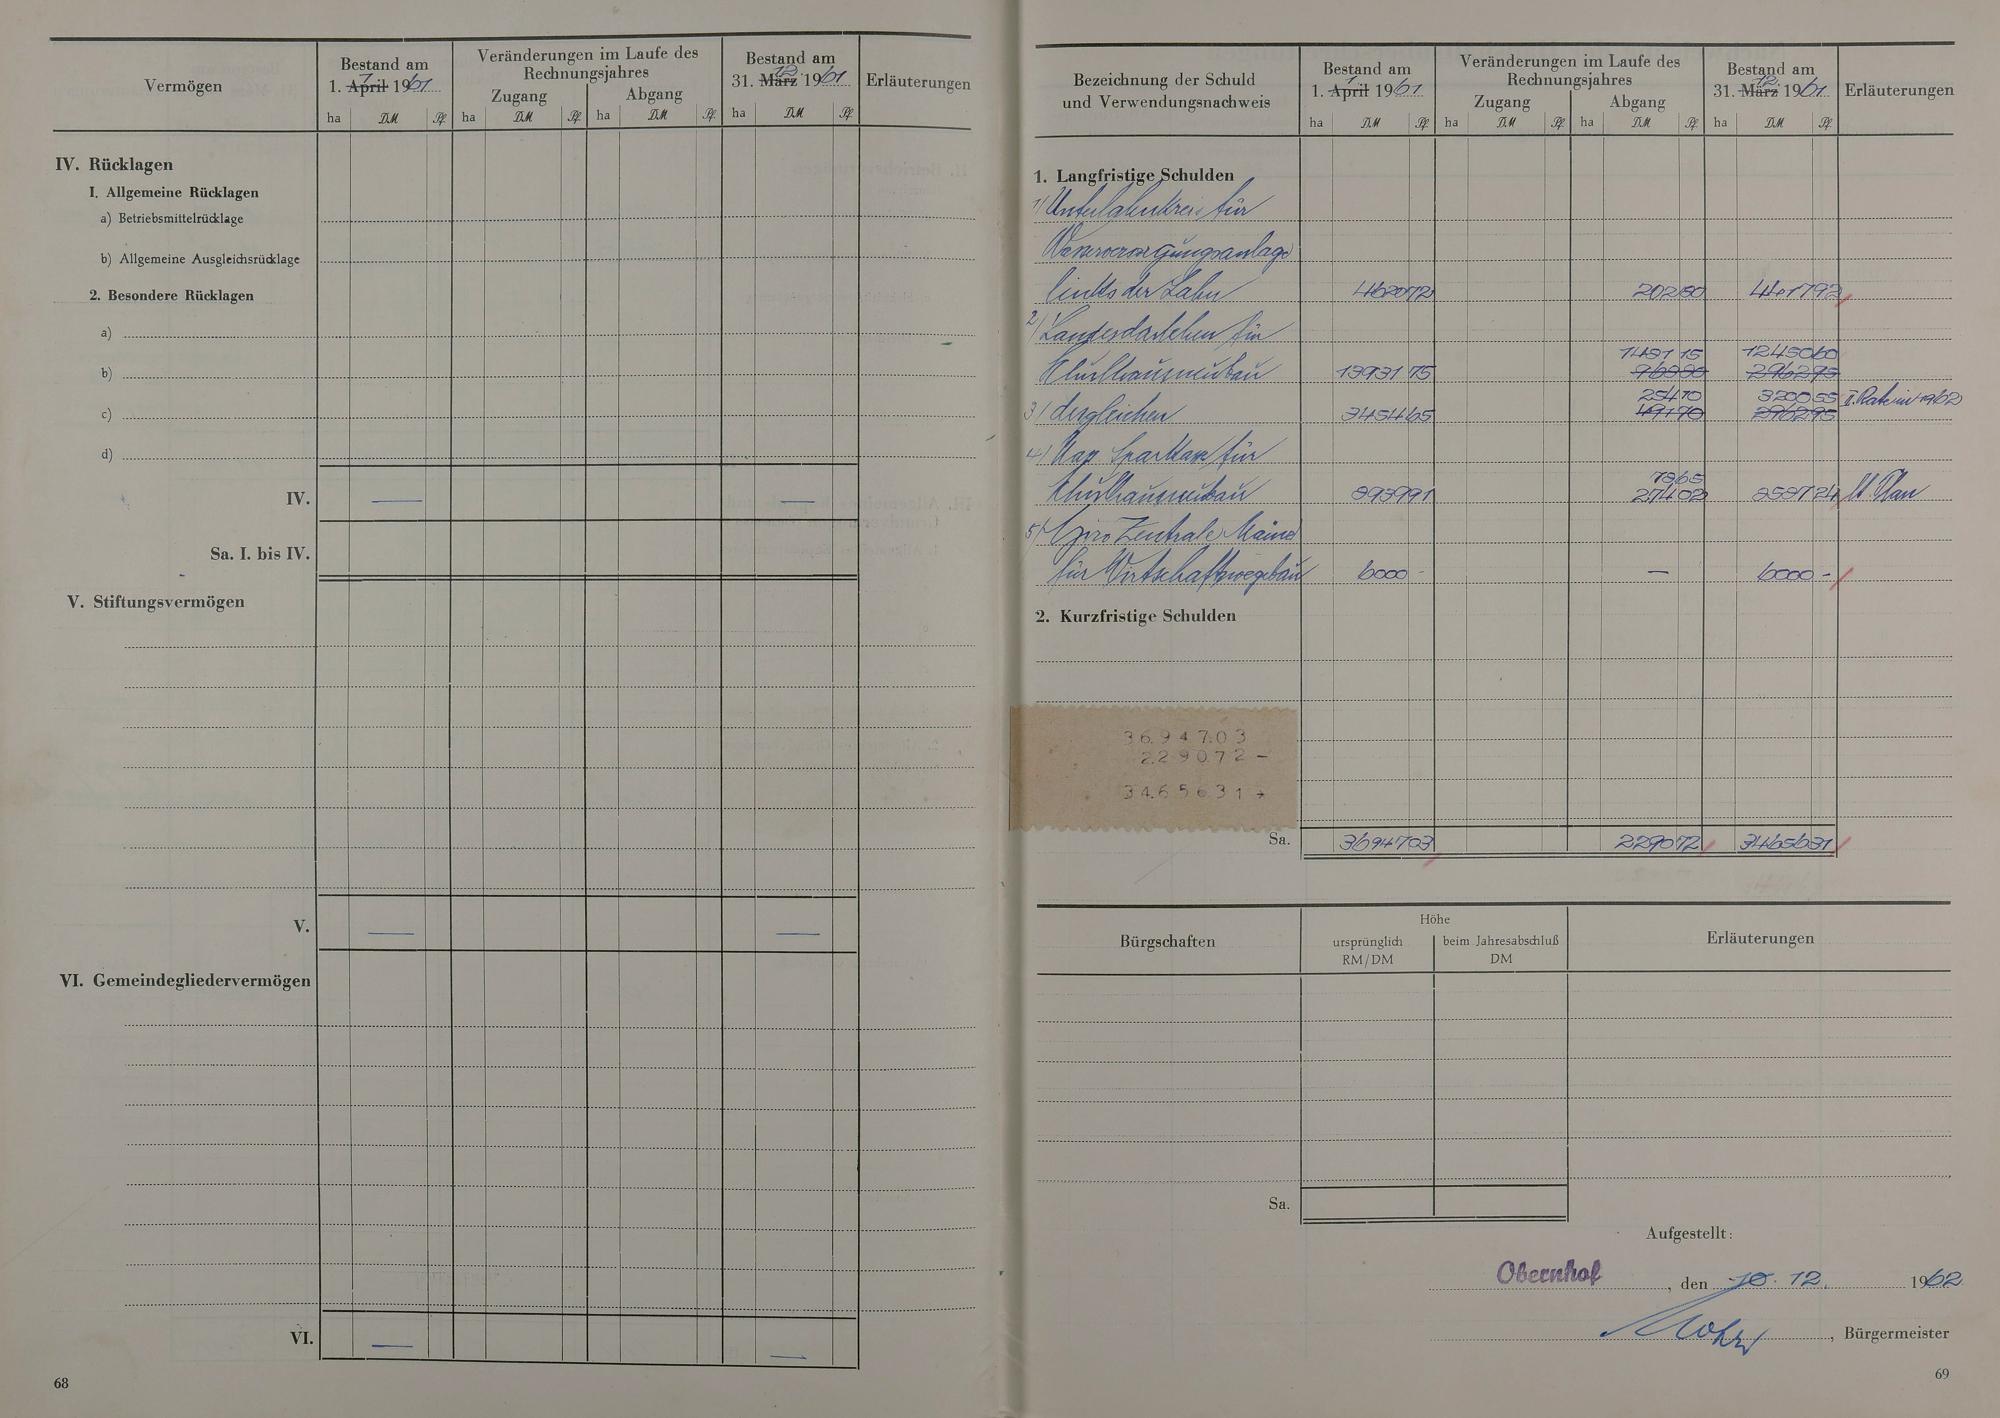 Vermögen
Bestand am
1. April 1. 1961
Veränderungen im Laufe des
Rechnungsjahres
Zugang
Abgang
Bestand am
31. März 12 1961
Erläuterungen
ha DM Pf. ha DM Pf. ha DM Pf. ha DM Pf.
IV. Rücklagen
1. Allgemeine Rücklagen
a) Betriebsmittelrücklage
b) Allgemeine Ausgleichsrücklage
2. Besondere Rücklagen
a)
b)
c)
d)
IV. — —
Sa. I. bis IV.
V. Stiftungsvermögen
V. — —
VI. Gemeindegliedervermögen
VI. — —
68
Bezeichnung der Schuld
und Verwendungsnachweis
Bestand am
1. April 1. 1961
Veränderungen im Laufe des
Rechnungsjahres
Zugang
Abgang
Bestand am
31. März 12 1961
Erläuterungen
ha DM Pf. ha DM Pf. ha DM Pf. ha DM Pf.
1. Langfristige Schulden
1/ Unterlahnkreis für
Wasserversorgungsanlage
links der Lahn 4620 72 202 80 4417 92
2/ Landesdarlehen für
1481 15 12450 60
Schulhausneubau 13931 75 2962 95
254 10 3200 55 II. Rate in 1962
3/ dergleichen 3454 65 491 70 2962 95
4/ Nass. Sparkasse für
78 65
Schulhausneubau 8939 91 274 02 lt. Plan
5/ Giro Zentrale Mainz
für Wirtschaftswegebau 6000 - — 6000 -
2. Kurzfristige Schulden
36.947.03
2.290.72 -
34.656.31
Sa. 36947 03 2290 72 34656 31
Bürgschaften
Höhe
ursprünglich
RM/DM
beim Jahresabschluß
DM
Erläuterungen
Sa.
Aufgestellt:
Obernhof, den 10. 12. 1962
, Bürgermeister
69